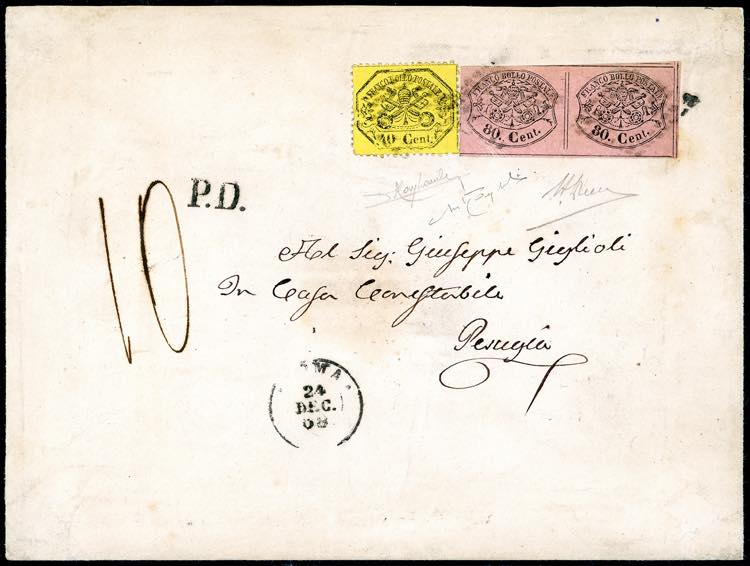 FRANCO BOLLO POSTALE
40 Cent.
FRANCO BOLLO POSTALE
80. Cent.
FRANCO BOLLO POSTALE
80. Cent.
P.D.
10
Al Sig: Giuseppe Giglioli
In Casa Conestabile
Perugia
ROMA
24
DEC.
68